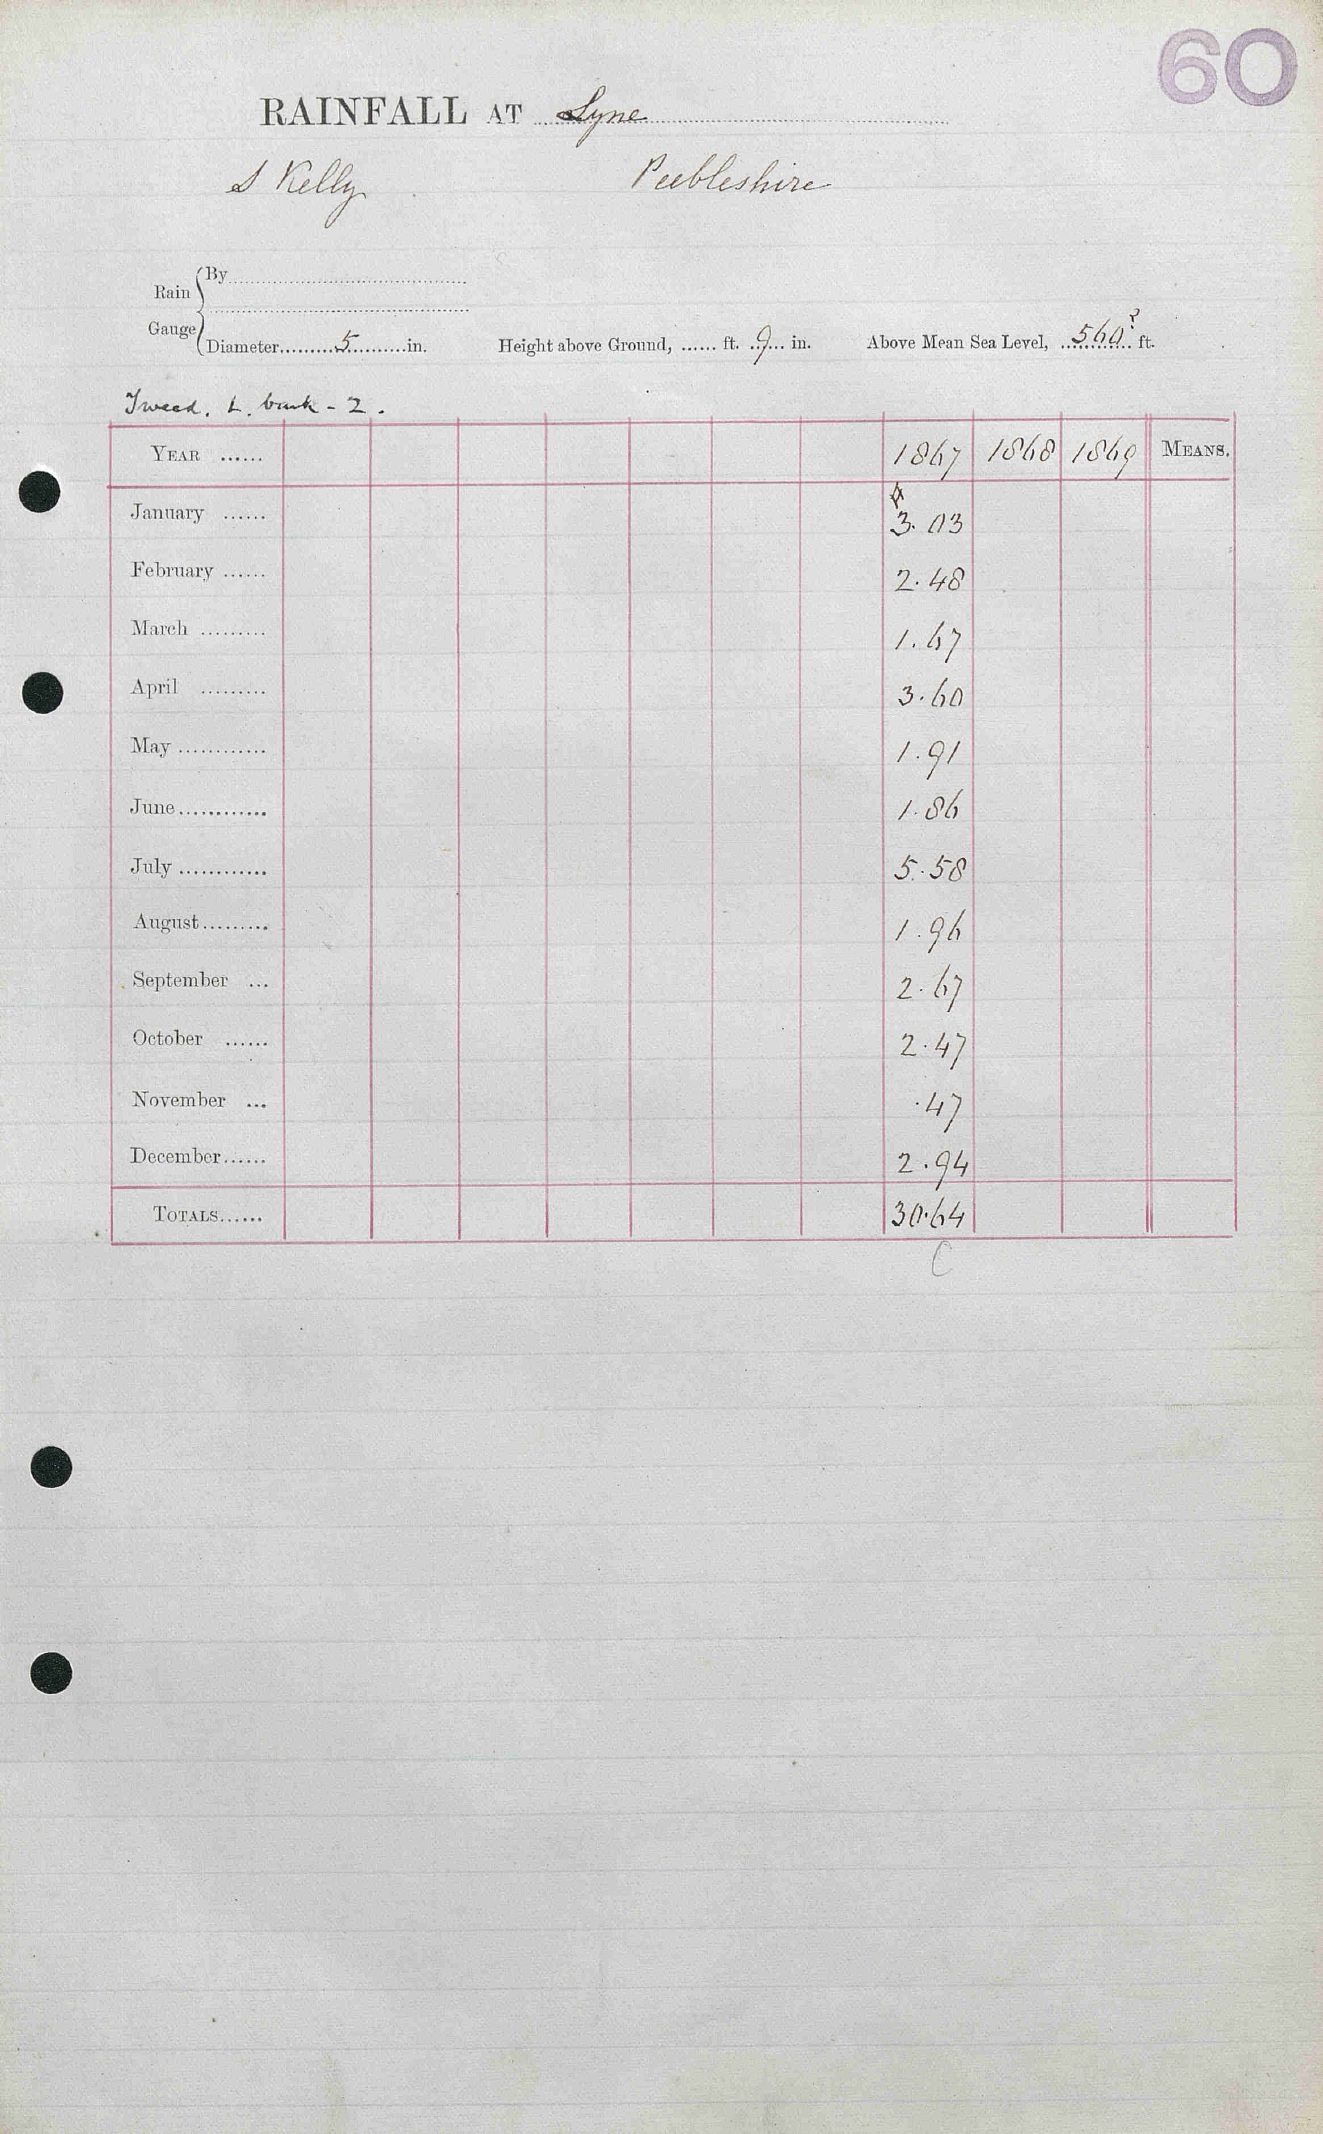 60
RAINFALL AT Lyne
S Kelly Peebleshire
Rain Gauge
By
Diameter 5 in. Height above Ground, ...... ft. 9 in. Above Mean Sea Level, 560? ft.
Tweed. L. bank - 2.
YEAR ...... 1867 1868 1869 MEANS.
January ...... 3.03
February ...... 2.48
March ......... 1.67
April ......... 3.60
May ............ 1.91
June ............ 1.86
July ............ 5.58
August ......... 1.96
September ... 2.67
October ...... 2.47
November ... .47
December ...... 2.94
TOTALS ...... 30.64
C